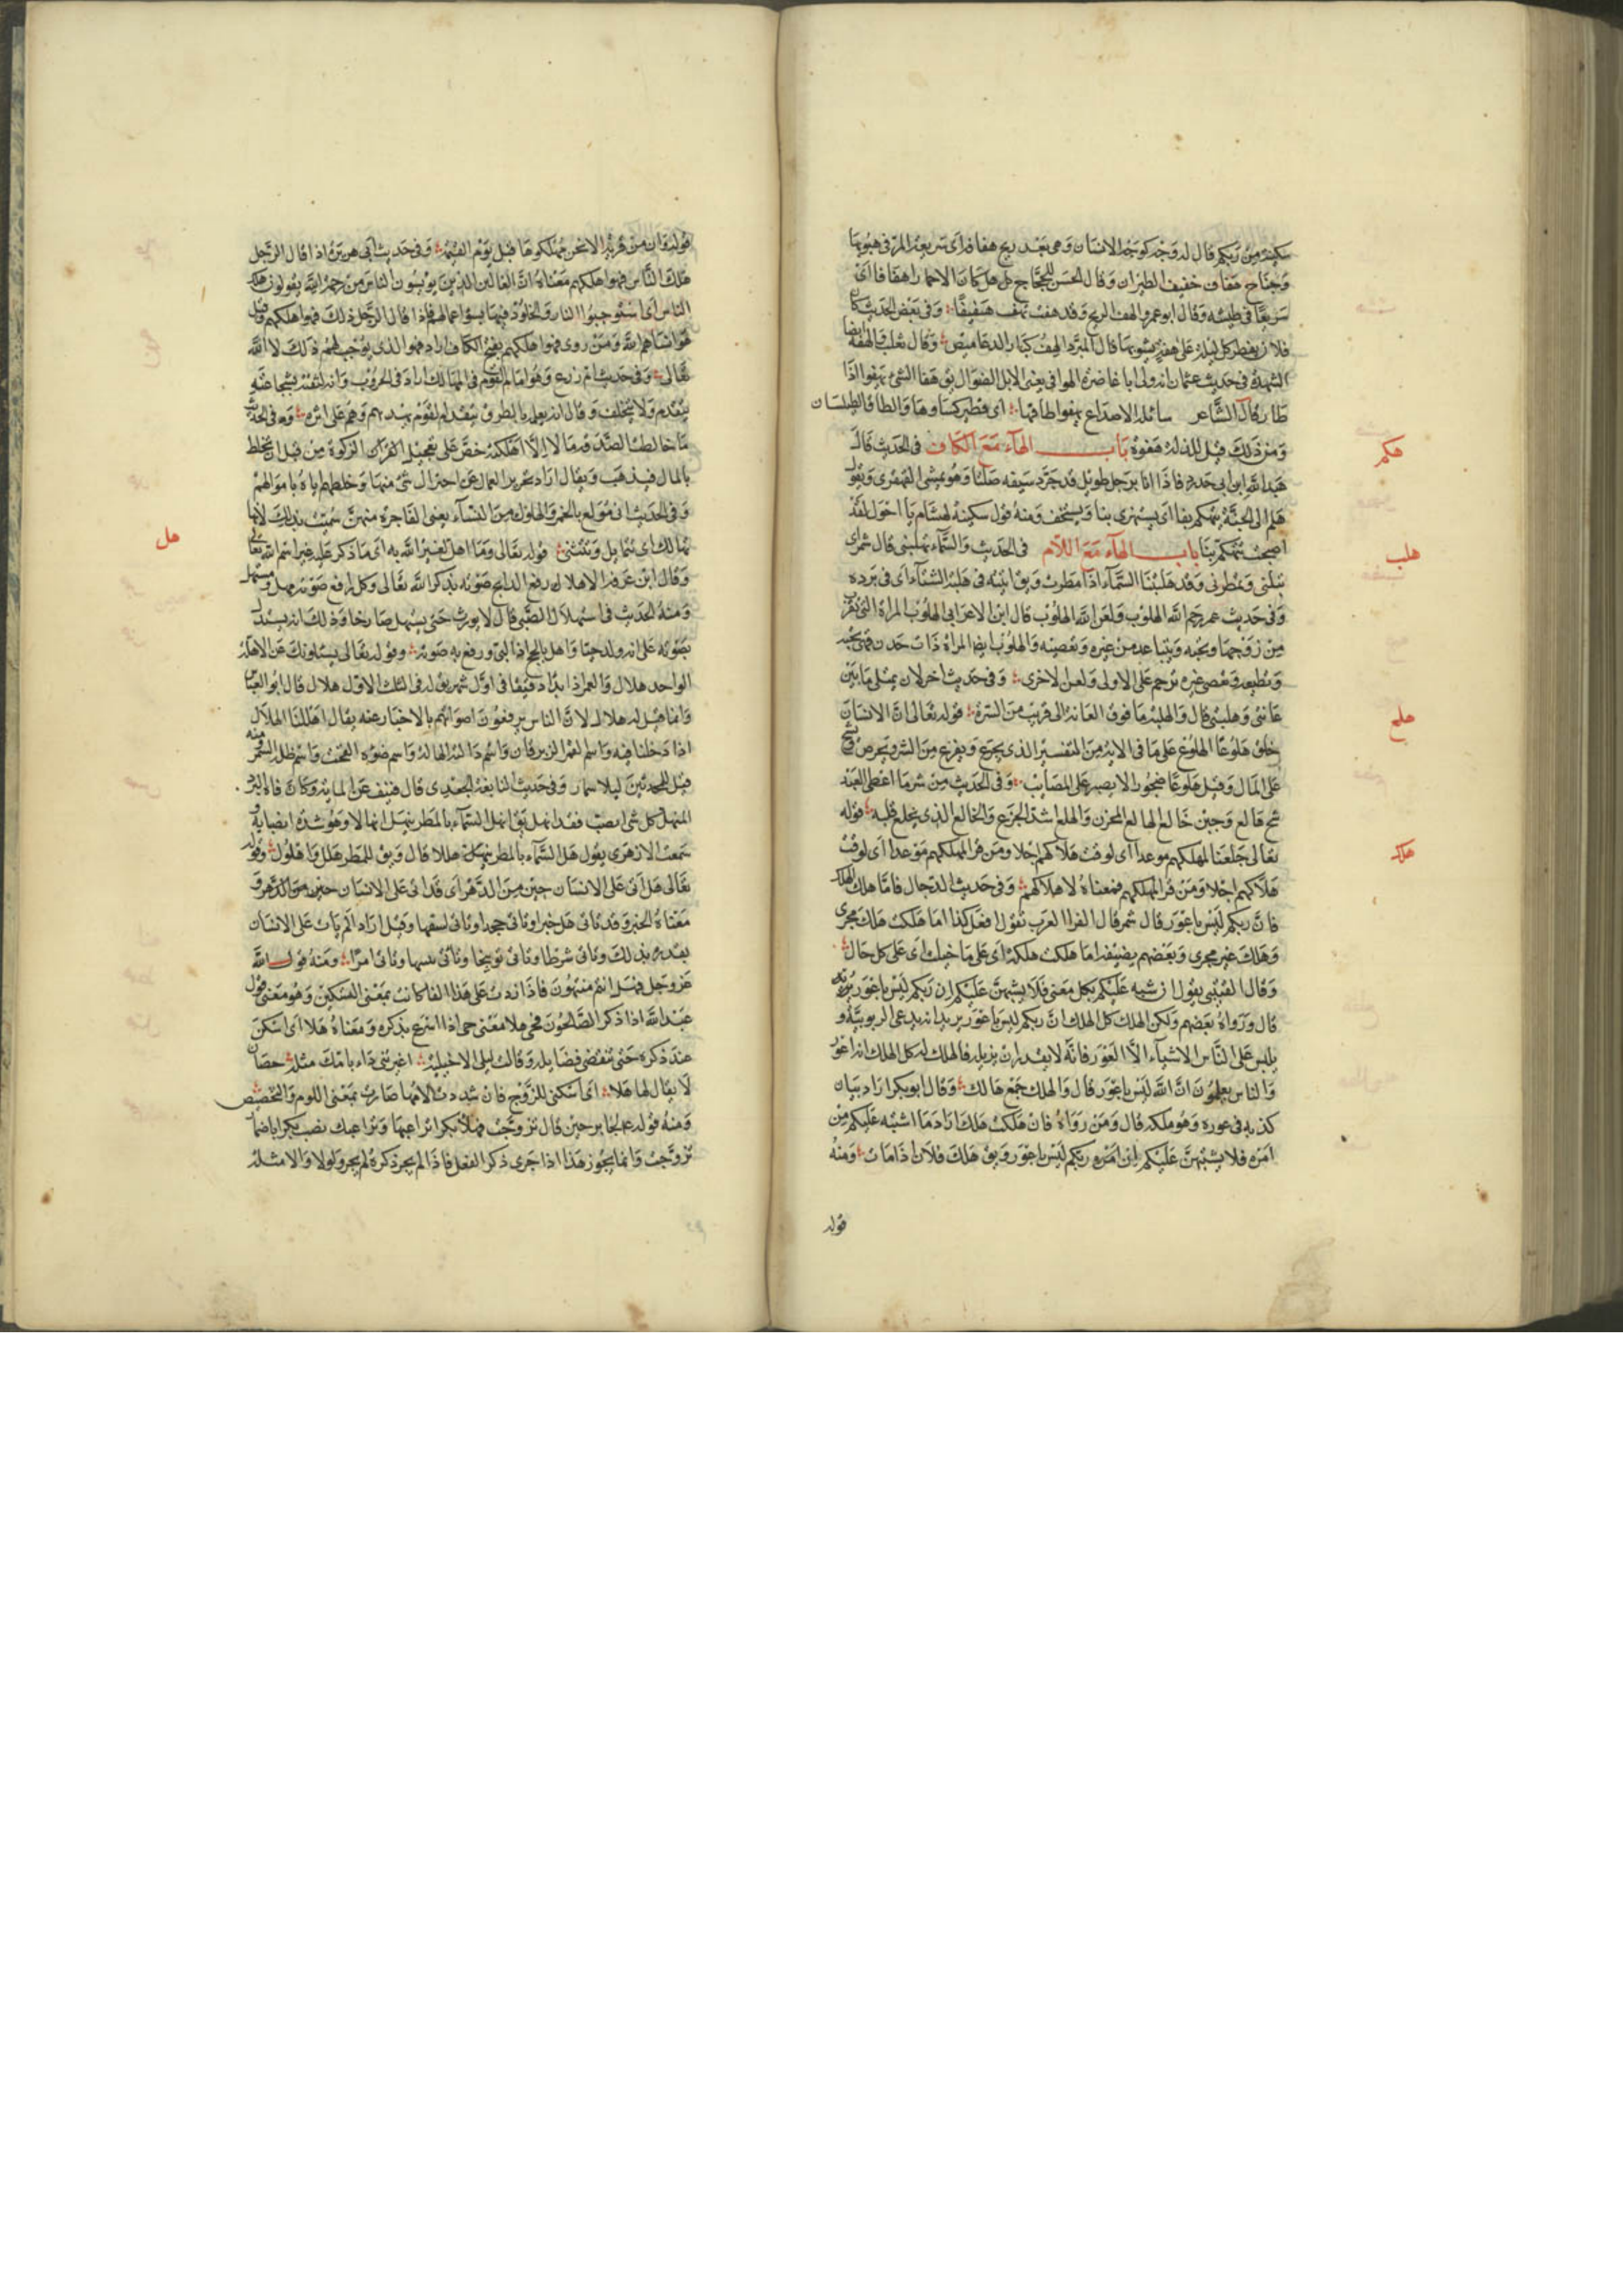 سكينة من ربكم قال له وجه كوجه الانسان وهى بعد ريح هفافة اى سريعة المر فى هبوبها
وجناح هفاف خفيف الطيران وقال الحسن للحجاج هل كان الا حمارا هفافا اى
سريعا فى طيشه وقال ابو عمرو الهف الريح وقد هفت تهف هفيفا وفى بعض الحديث كان
فلان يفطر كل ليلة على هفة يشويها قال المبرد الهف كبار الدعاميص وقال ثعلب الهفة ايضا
الشهدة فى حديث عثمان انه ولى ابا غاضرة الهوافى يعنى الابل الضوال يق هفا الشئ يهفوا اذا
طار وقال الشاعر سائلة الاصداغ يهفوا طاقها اى فطير كساوها والطاق الطيلسان
ومن ذلك قيل للذلة هفوة باب الهاء مع الكاف فى الحديث قال
عبد الله ابن ابى حدرد فاذا انا برجل طويل قد جرد سيفه صلتا وهو يمشى القهقرى ويقول
هلم الى الجنة يتهكم بنا اى يستهزى بنا ويستخف ومنه قول سكينة لهشام يا احول لقد
اصبحت تتهكم بنا باب الهاء مع اللام فى الحديث والسماء تهلبنى قال شمر اى
تبلنى وتمطرنى وقد هلبتنا السماء اذا مطرت ويق اتيته فى هلبة الشتاء اى فى برده
وفى حديث عمر رحم الله الهلوب ولعن الله الهلوب قال ابن الاعرابى الهلوب المراة التى تقرب
من زوجها وتحبه وتتباعد من غيره وتقصيه والهلوب ايضا المراة ذات خدن فهى تحبه
وتطيعه وتعصى غيره ترحم على الاولى ولعن الاخرى وفى حديث اخر لان يمتلى ما بين
عانتى وهلبتى قال والهلبة ما فوق العانة الى قريب من السرة قوله تعالى ان الانسان
خلق هلوعا الهلوع على ما فى الاية من التفسير الذى يجزع ويفزع من الشر ويحرص ويشح
على المال وقيل هلوعا ضجورا لا يصبر على المصايب وفى الحديث من شر ما اعطى العبد
شح هالع وجبن خالع الهالع المحزن والهلع اشد الجزع والخالع الذى يخلع قلبه قوله
تعالى جعلنا لمهلكهم موعدا اى لوقت هلاكهم اجلا ومن قرا لمهلكهم موعدا اى لوقت
هلاكهم اجلا ومن قرا لمهلكهم فمعناه لاهلاكهم وفى حديث الدجال فاما هلك الهلك
فان ربكم ليس باعور قال شمر قال الفرا العرب تقول افعل كذا اما هلكت هلك مجرى
وهلك غير مجرى وبعضهم يضيفه اما هلكت هلكه اى على ما خيلت اى على كل حال
وقال القتيبى يقول ان شبه عليكم بكل معنى فلا يشبهن عليكم ان ربكم ليس باعور
قال ورواه بعضهم ولكن الهلك كل الهلك ان ربكم ليس باعور يريد انه يدعى الربوبية و
يلبس على الناس الاشياء الا العور فانه لا يقدر ان يزيله فالهلك له كل الهلك انه اعور
والناس يعلمون ان الله ليس باعور قال والهلك جمع هالك وقال ابو بكر اراد بيان
كذبه فى عوره وهو هلكه قال ومن رواه فان هلكت هلك اراد ما اشتبه عليكم من
امره فلا يشبهن عليكم ان ربكم ليس باعور ويق هلك فلان اذا مات ومنه
قوله
هكم
هلب
هلع
هلك
قوله وان من قرية الا نحن مهلكوها قبل يوم القيمة وفى حديث ابى هريرة اذا قال الرجل
هلك الناس فهو اهلكهم معناه ان الغالين الذين يويسون الناس من رحمة الله يقولون هلك
الناس اى استوجبوا النار والخلود فيها بسوء اعمالهم فاذا قال الرجل ذلك فهو اهلكهم وقيل
هو انساهم لله ومن روى فهو اهلكهم بفتح الكاف اراد فهو الذى يوجب لهم ذلك لا الله
تعالى وفى حديث ام زرع وهو امام القوم فى المهالك اراد فى الحروب وانه لثقته بشجاعته
يتقدم ولا يتخلف وقال انه يعلم بالطرق يتقدم القوم يهديهم وهم على اثره وفى الحديث
ما خالطت الصدقة مالا الا اهلكته حض على تعجيل الزكوة من قبل ان تختلط
بالمال فيذهب ويقال اراد تحذير العمال عن اختزال شئ منها وخلطهم اياه باموالهم
وفى الحديث انى مولع بالخمر والهلوك من النساء يعنى الفاجرة منهن سميت بذلك لانها
تهالك اى تتمايل وتتثنى قوله تعالى وما اهل لغير الله به اى ما ذكر عليه غير اسم الله تعالى
وقال ابن عرفة الاهلال رفع الذابح صوته بذكر الله تعالى وكل رافع صوته مهل ومستهل
ومنه الحديث فى استهلال الصبى قال لا يورث حتى يستهل صارخا وذلك انه يستدل
بصوته على انه ولد حيا واهل بالحج اذا لبى ورفع به صوته وقوله تعالى يسئلونك عن الاهلة
الواحد هلال والقمر اذا بدا دقيقا فى اول شهر يق له فى الثلث الاول هلال قال ابو العباس
وانما قيل له هلال لان الناس يرفعون اصواتهم بالاخبار عنه يقال اهللنا الهلال
اذا دخلنا فيه واسم القمر الزبرقان واسم دارته الهالة واسم ضوءه الفخت واسم ظله السمر ومنه
قيل للمتحدثين ليلا سمار وفى حديث النابغة الجعدى قال فنيف عن الماية وكان فاه البرد
المنهل كل شئ انصب فقد انهل يق انهل السماء بالمطر ينهل انهلالا وهو شدة انصبابه و
سمعت الازهرى يقول هل السماء بالمطر هللا قال ويق للمطر هلل واهلول وقوله
تعالى هل اتى على الانسان حين من الدهر اى قد اتى على الانسان حين من الدهر و
معناه الخبر وقد تاتى هل خبرا وتاتى جحدا وتاتى استفهاما وقيل اراد الم يات على الانسان
بقديره بذلك وتاتى شرطا وتاتى توبيخا وتاتى تنبيها وتاتى امرا ومنه قول الله
عز وجل فهل انتم منتهون فاذا زدت على هذا الفا كانت بمعنى التسكين وهو معنى قول
عبد الله اذا ذكر الصالحون فحى هلا معنى حى اذا اسرع بذكره ومعناه هلا اى اسكن
عند ذكره حتى تنقضى فضايله وقالت ليلى الاخيلية اعيرتنى داء بامك مثله حصان
لا يقال لها هلا اى اسكنى للزوج فان شددت لامها صارت بمعنى اللوم والتحضيض
ومنه قوله عم لجابر حين قال تزوجت فهلا بكرا تلاعبها وتلاعبك نصب بكرا باضمار
تزوجت وانما يجوز هذا اذا جرى ذكر الفعل فاذا لم يجر ذكره لم يجز ولولا والا مثله
هل